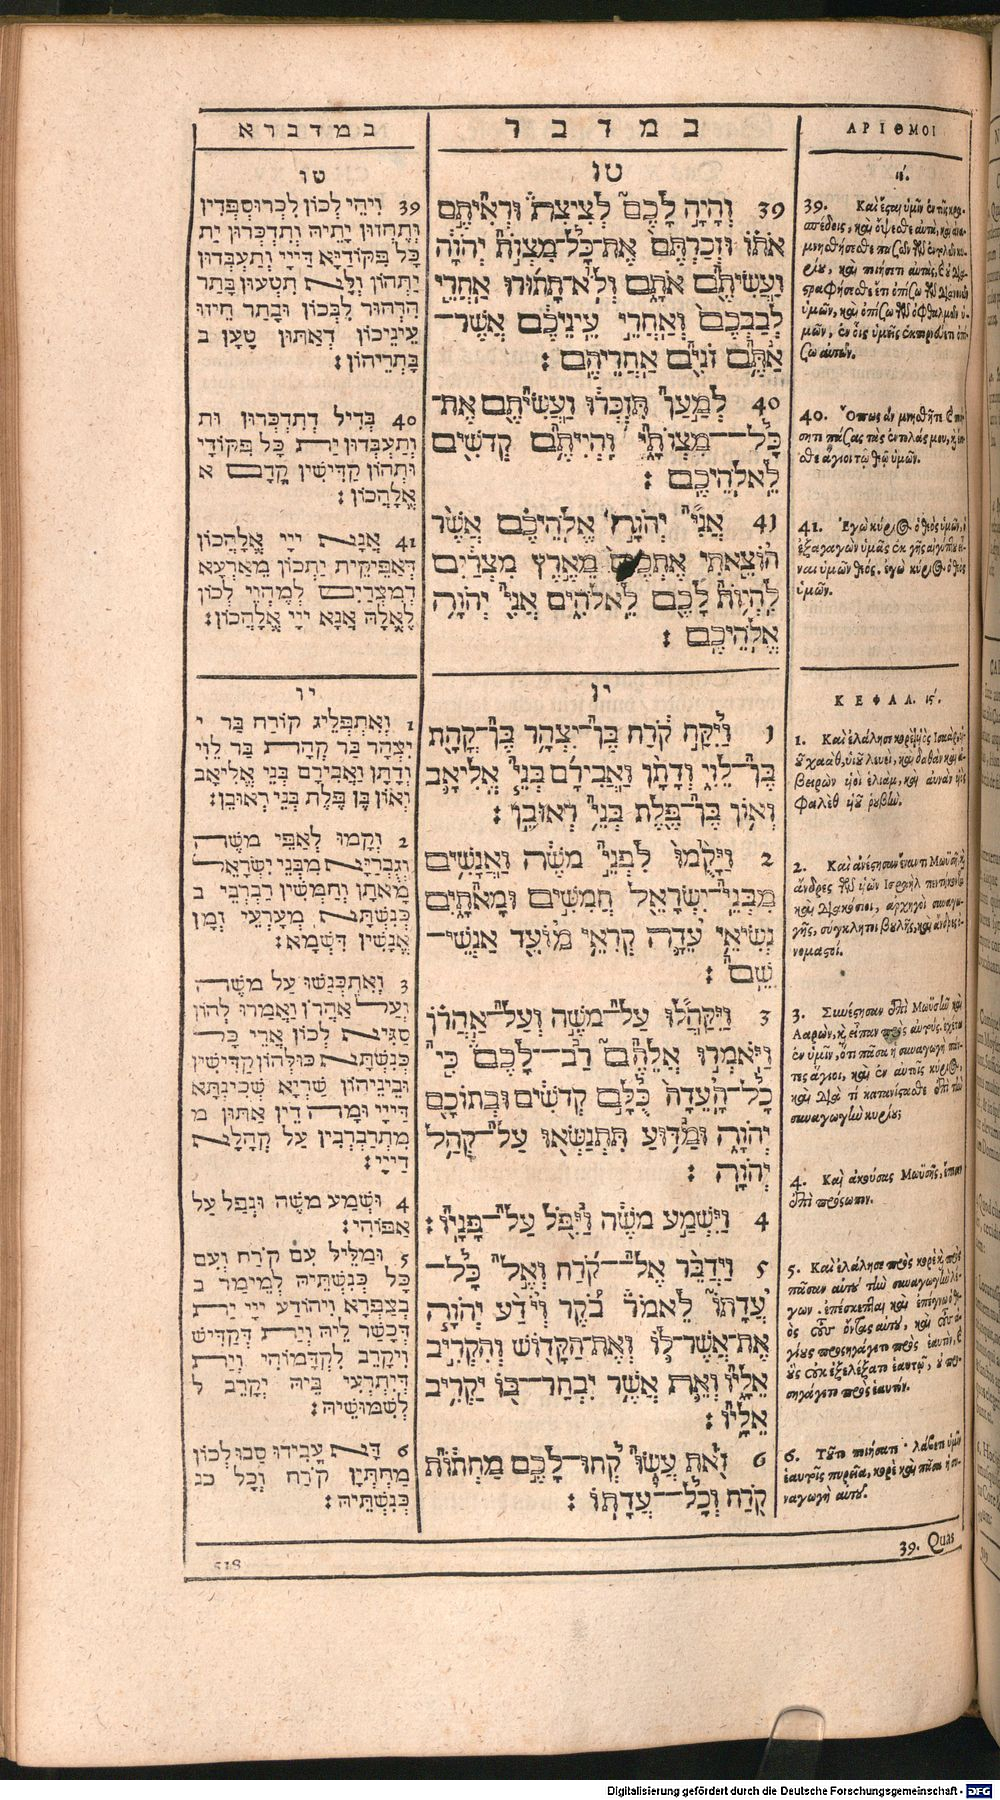 במדברא
טו
39 וִיהֵי לְכוֹן לִכְרוּסְפְּדִין
וְתֶחְזוּן יָתֵיהּ וְתִדְכְּרוּן יַת
כָּל פִּקּוֹדַיָּא דַּייָי וְתַעְבְּדוּן
יַתְהוֹן וְלָא תִטְעוּן בָּתַר
הִרְהוּר לִבְּכוֹן וּבָתַר חֵיזוּ
עֵינֵיכוֹן דְּאַתּוּן טָעָן ב
בָּתְרֵיהוֹן:
40 בְּדִיל דְתִדְכְּרוּן וּת
וְתַעְבְּדוּן יַת כָּל פִּקּוֹדַי
וּתְהוֹן קַדִּישִׁין קֳדָם א
אֱלָהֲכוֹן:
41 אֲנָא יְיָי אֱלָהֲכוֹן
דְּאַפֵּיקִית יַתְכוֹן מֵאַרְעָא
דְמִצְרַיִם לְמֶהֱוֵי לְכוֹן
לֶאֱלָהּ אֲנָא יְיָי אֱלָהֲכוֹן:
יו
1 וְאִתְפְּלֵיג קוֹרַח בַּר י
יִצְהָר בַּר קְהָת בַּר לֵוִי
וְדָתָן וַאֲבִירָם בְּנֵי אֱלִיאָב
וְאוֹן בֶּן פֶּלֶת בְּנֵי רְאוּבֵן:
2 וְקָמוּ לְאַפֵּי מֹשֶׁה
וְגֻבְרַיָּא מִבְּנֵי יִשְׂרָאֵל
מָאתָן וְחַמְשִׁין רַבְרְבֵי ב
כְּנִשְׁתָּא מְעָרְעֵי זְמָן
אֱנָשִׁין דִּשְׁמָא:
3 וְאִתְכְּנַשׁוּ עַל מֹשֶׁה
וְעַל אַהֲרֹן וַאֲמַרוּ לְהוֹן
סַגִּי לְכוֹן אֲרֵי כָּל
כְּנִשְׁתָּא כּוּלְּהוֹן קַדִּישִׁין
וּבֵינֵיהוֹן שַׁרְיָא שְׁכִינְתָּא
דַּייָי וּמָה דֵין אַתּוּן מ
מִתְרַבְרְבִין עַל קְהָלָא
דַייָי:
4 וּשְׁמַע מֹשֶׁה וּנְפַל עַל
אַפּוֹהִי:
5 וּמַלֵּיל עִם קוֹרַח וְעִם
כָּל כְּנִשְׁתֵּיהּ לְמֵימַר ב
בְצַפְרָא וִיהוֹדַע יְיָי יַת
דְּכָשַׁר לֵיהּ וְיַת דְּקַדִּישׁ
וִיקָרֵב לִקְדָמוֹהִי וְיַת
דְּיִתְרְעֵי בֵיהּ יְקָרֵב ל
לְשִׁמּוּשֵׁיהּ:
6 דָּא עֲבִידוּ סַבוּ לְכוֹן
מַחְתְּיָן קוֹרַח וְכָל כנ
כְּנִשְׁתֵּיהּ:
518
במדבר
טו
39 וְהָיָה לָכֶם לְצִיצִת וּרְאִיתֶם
אֹתוֹ וּזְכַרְתֶּם אֶת־כָּל־מִצְוֹת יְהוָה
וַעֲשִׂיתֶם אֹתָם וְלֹא־תָתוּרוּ אַחֲרֵי
לְבַבְכֶם וְאַחֲרֵי עֵינֵיכֶם אֲשֶׁר־
אַתֶּם זֹנִים אַחֲרֵיהֶם:
40 לְמַעַן תִּזְכְּרוּ וַעֲשִׂיתֶם אֶת־
כָּל־מִצְוֹתָי וִהְיִיתֶם קְדֹשִׁים
לֵאלֹהֵיכֶם:
41 אֲנִי יְהוָה אֱלֹהֵיכֶם אֲשֶׁר
הוֹצֵאתִי אֶתְכֶם מֵאֶרֶץ מִצְרַיִם
לִהְיוֹת לָכֶם לֵאלֹהִים אֲנִי יְהוָה
אֱלֹהֵיכֶם:
יו
1 וַיִּקַּח קֹרַח בֶּן־יִצְהָר בֶּן־קְהָת
בֶּן־לֵוִי וְדָתָן וַאֲבִירָם בְּנֵי אֱלִיאָב
וְאוֹן בֶּן־פֶּלֶת בְּנֵי רְאוּבֵן:
2 וַיָּקֻמוּ לִפְנֵי מֹשֶׁה וַאֲנָשִׁים
מִבְּנֵי־יִשְׂרָאֵל חֲמִשִּׁים וּמָאתָיִם
נְשִׂיאֵי עֵדָה קְרִאֵי מוֹעֵד אַנְשֵׁי־
שֵׁם:
3 וַיִּקָּהֲלוּ עַל־מֹשֶׁה וְעַל־אַהֲרֹן
וַיֹּאמְרוּ אֲלֵהֶם רַב־לָכֶם כִּי
כָל־הָעֵדָה כֻּלָּם קְדֹשִׁים וּבְתוֹכָם
יְהוָה וּמַדּוּעַ תִּתְנַשְּׂאוּ עַל־קְהַל
יְהוָה:
4 וַיִּשְׁמַע מֹשֶׁה וַיִּפֹּל עַל־פָּנָיו:
5 וַיְדַבֵּר אֶל־קֹרַח וְאֶל כָּל־
עֲדָתוֹ לֵאמֹר בֹּקֶר וְיֹדַע יְהוָה
אֶת־אֲשֶׁר־לוֹ וְאֶת־הַקָּדוֹשׁ וְהִקְרִיב
אֵלָיו וְאֵת אֲשֶׁר יִבְחַר־בּוֹ יַקְרִיב
אֵלָיו:
6 זֹאת עֲשׂוּ קְחוּ־לָכֶם מַחְתּוֹת
קֹרַח וְכָל־עֲדָתוֹ:
ΑΡΙΘΜΟΙ
ιέ.
39. Καὶ ἔςαι ὑμῖν ἐν τοῖς κρα-
σπέδοις, καὶ ὄψεσθε αὐτὰ, καὶ ἀνα-
μνησθήσεσθε πασῶν τῶν ἐντολῶν κυ-
ρίου, καὶ ποιήσετε αὐτάς, ἐ οὐ δια-
ςραφήσεσθε ἔτι ὀπίσω τῶν διανοιῶν
ὑμῶν, καὶ ὀπίσω τῶν ὀφθαλμῶν ὑ-
μῶν, ἐν οἷς ὑμεῖς ἐκπορνεύετε ὀπί-
σω αὐτῶν.
40. Ὅπως ἂν μνησθῆτε ἐ ποι-
ήσητε πάσας τὰς ἐντολάς μου, καὶ ἔσε-
σθε ἅγιοι τῷ θεῷ ὑμῶν.
41. Ἐγὼ κύριος ὁ θεὸς ὑμῶν, ὁ
ἐξαγαγὼν ὑμᾶς ἐκ γῆς αἰγύπτου εἶ-
ναι ὑμῶν θεός. ἐγὼ κύριος ὁ θεὸς
ὑμῶν.
ΚΕΦΑΛ. ις΄.
1. Καὶ ἐλάλησε κορὲ υἱὸς Ισαὰρ υἱ-
οῦ καὰθ, υἱοῦ λευεὶ, καὶ δαθὰν καὶ ἀ-
βειρὼν υἱοὶ ἐλιὰμ, καὶ αὐνὰν υἱὸς
Φαλὲθ υἱοῦ ῥουβίω.
2. Καὶ ἀνέςησαν ἔναντι Μωϋσῆ, καὶ
ἄνδρες τῶν υἱῶν Ισραὴλ πεντήκοντα
καὶ διακόσιοι, ἀρχηγοὶ συναγω-
γῆς, σύγκλητοι βουλῆς, καὶ ἄνδρες ὀ-
νομαςοί.
3. Συνέςησαν ἐπὶ Μωϋσῶ καὶ
Ααρὼν, καὶ εἶπαν πρὸς αὐτούς, ἐχέτω
ἐν ὑμῖν, ὅτι πᾶσα ἡ συναγωγὴ πάν-
τες ἅγιοι, καὶ ἐν αὐτοῖς κύριος,
καὶ διὰ τί κατανίςασθε ἐπὶ τὼ
συναγωγὼ κυρίου;
4. Καὶ ἀκούσας Μωϋσῆς, ἔπεσεν
ἐπὶ πρόσωπον.
5. Καὶ ἐλάλησε πρὸς κορὲ καὶ πρὸς
πᾶσαν αὐτοῦ τὼ συναγωγὼ λέ-
γων. ἐπέσκεπται καὶ ἐπέγνω ὁ θε-
ὸς τοὺς ὄντας αὐτοῦ, καὶ τοὺς ἁ-
γίους προσηγάγετο πρὸς ἑαυτὸν, ἐ
οὓς οὐκ ἐξελέξατο ἑαυτῷ, οὐ προ-
σηγάγετο πρὸς ἑαυτόν.
6. Τοῦτο ποιήσατε· λάβετε ὑμῖν
ἑαυτοῖς πυρεῖα, κορὲ καὶ πᾶσα ἡ συ-
ναγωγὴ αὐτοῦ.
39. Quas
Digitalisierung gefördert durch die Deutsche Forschungsgemeinschaft - DFG